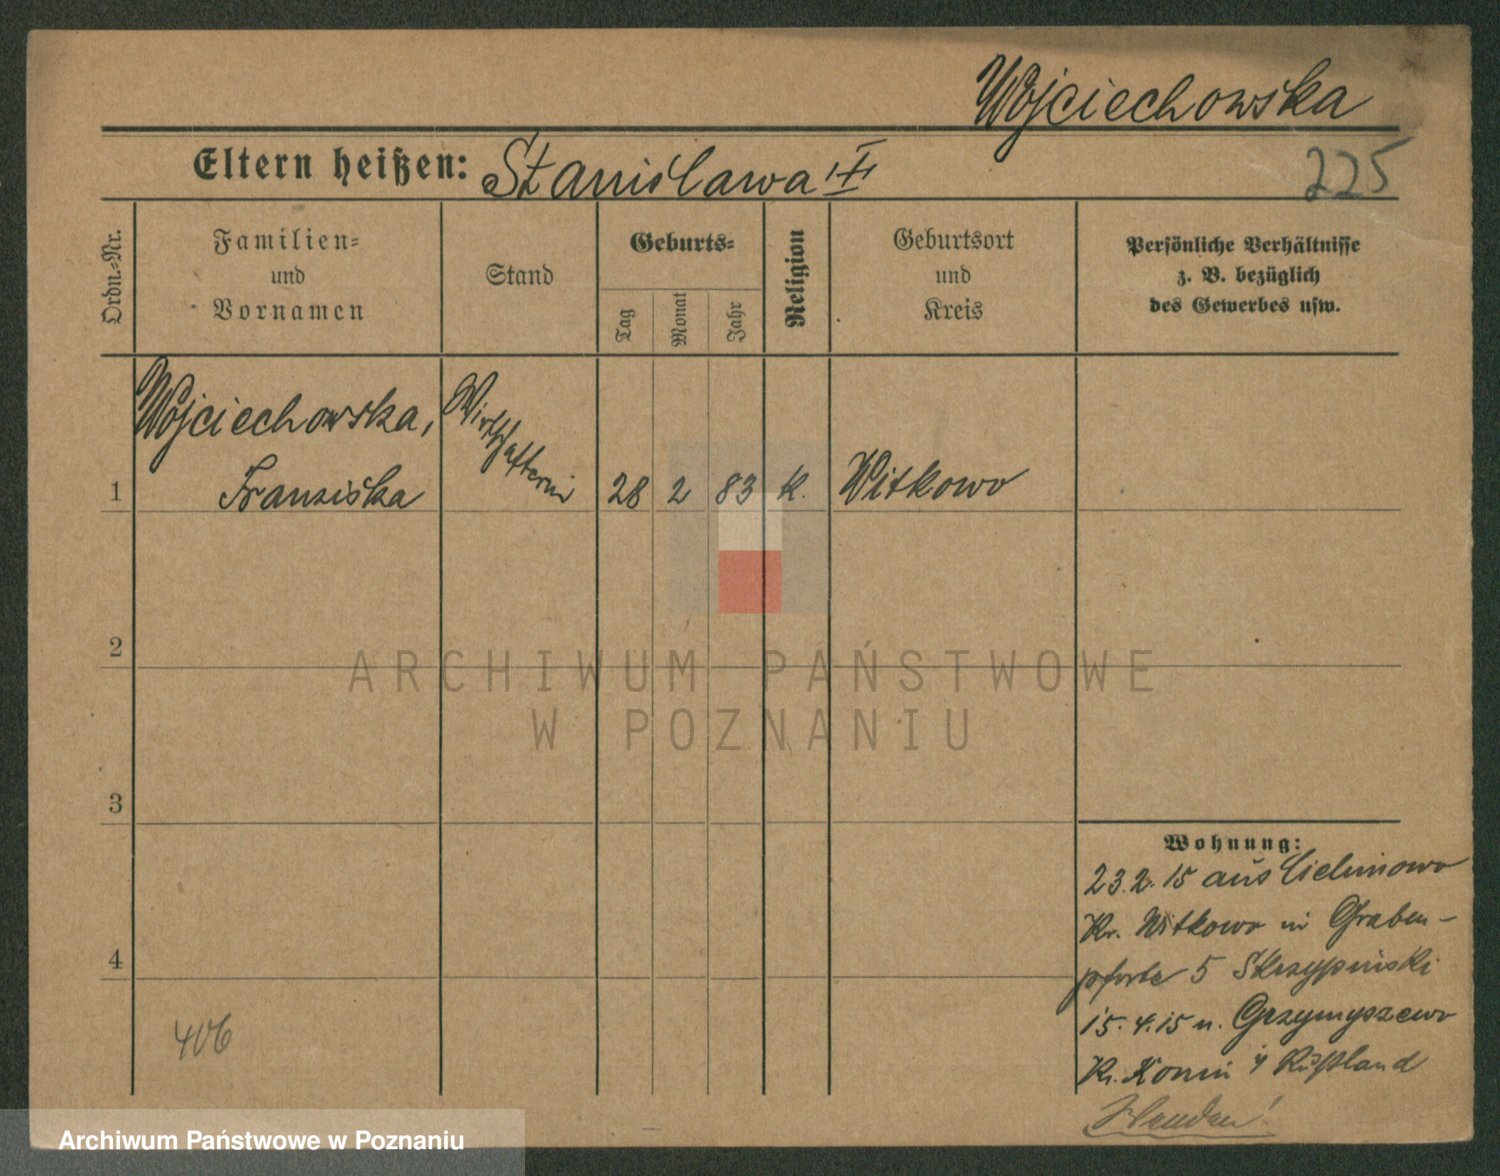 Wojciechowska
Eltern heißen: Stanislawa
225
Ordn.=Nr.
Familien=
und
Vornamen
Stand
Geburts=
Tag
Monat
Jahr
Religion
Geburtsort
und
Kreis
Persönliche Verhältnisse
z. B. bezüglich
des Gewerbes usw.
Wojciechowska,
1 Franziska Wirtschafterin 28 2 83 k. Witkowo
2
3
4
Wohnung:
23.2.15 aus
Kr. Witkowo in Graben-
pforte 5 Skrzypinski
15.4.15 n. Grzymyszewo
Kr. Konin Rußland
406
ARCHIWUM PAŃSTWOWE
W POZNANIU
Archiwum Państwowe w Poznaniu